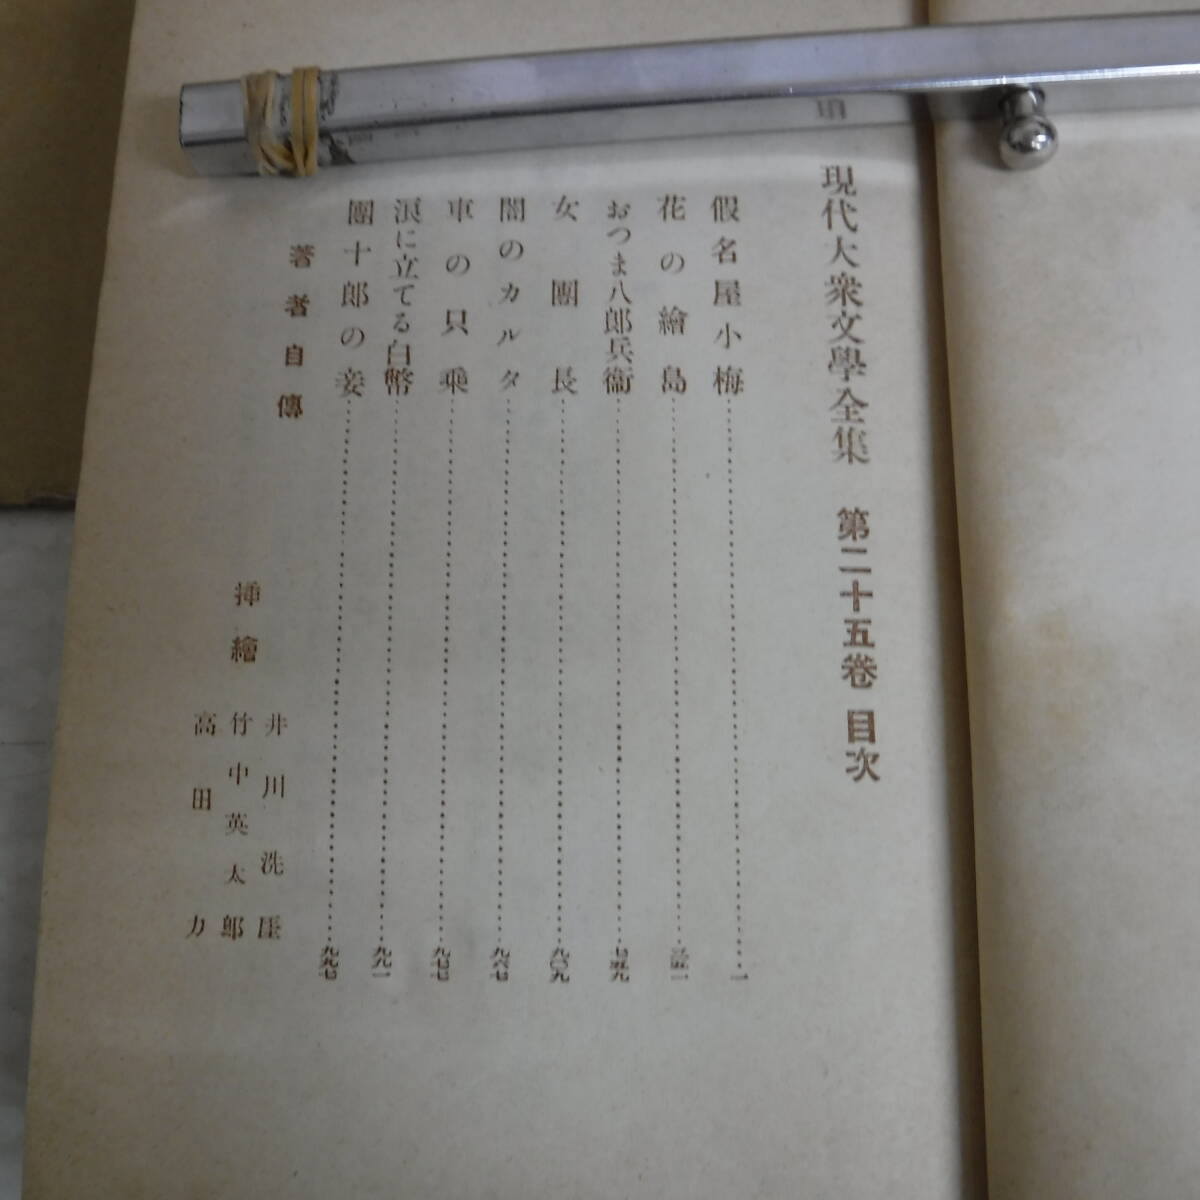 現代大衆文學全集 第二十五卷 目次
假名屋小梅……一
花の繪島……三五一
おつま八郎兵衞……七五九
女團長……九〇九
闇のカルタ……九六七
車の只乗……九七七
浪に立てる白幣……九九一
團十郎の妾……九九七
著者自傳
挿繪
井川洗厓
竹中英太郎
高田力